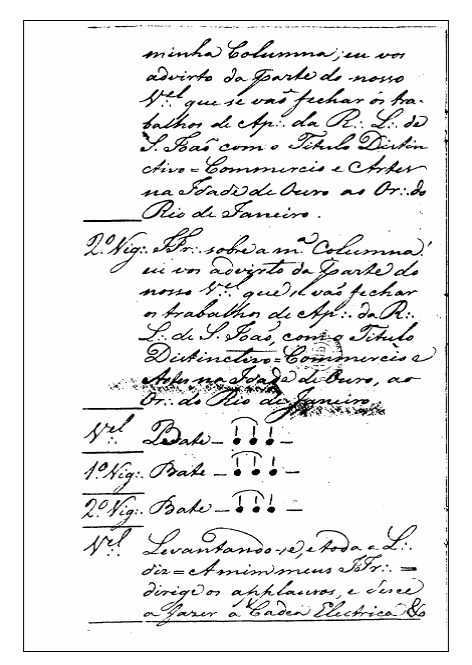 minha Columna, eu vos
advirto da parte do nosso
Vel∴ que se vaõ fechar os tra-
balhos de Ap∴ da R∴ L∴ de
S. Joaõ com o Titulo Distin
ctivo = Commercio e Artes
na Idade de Ouro ao Or∴ do
Rio de Janeiro.
2º Vig∴ IIr∴ sobre a mª Columna
eu vos advirto da parte do
nosso Vel∴ que se vaõ fechar
os trabalhos de Ap∴ da R∴
L∴ de S. Joaõ, com o Titulo
Distinctivo = Commercio e
Artes na Idade de Ouro, ao
Or∴ do Rio de Janeiro.
Vel∴ Bate – ! ! ! –
1º Vig∴ Bate – ! ! ! –
2º Vig∴ Bate – ! ! ! –
Vel∴ Levantando-se, e toda a L∴
diz = A mim meus IIr∴ =
dirige os applausos, e desce
a fazer a Cadea Electrica &